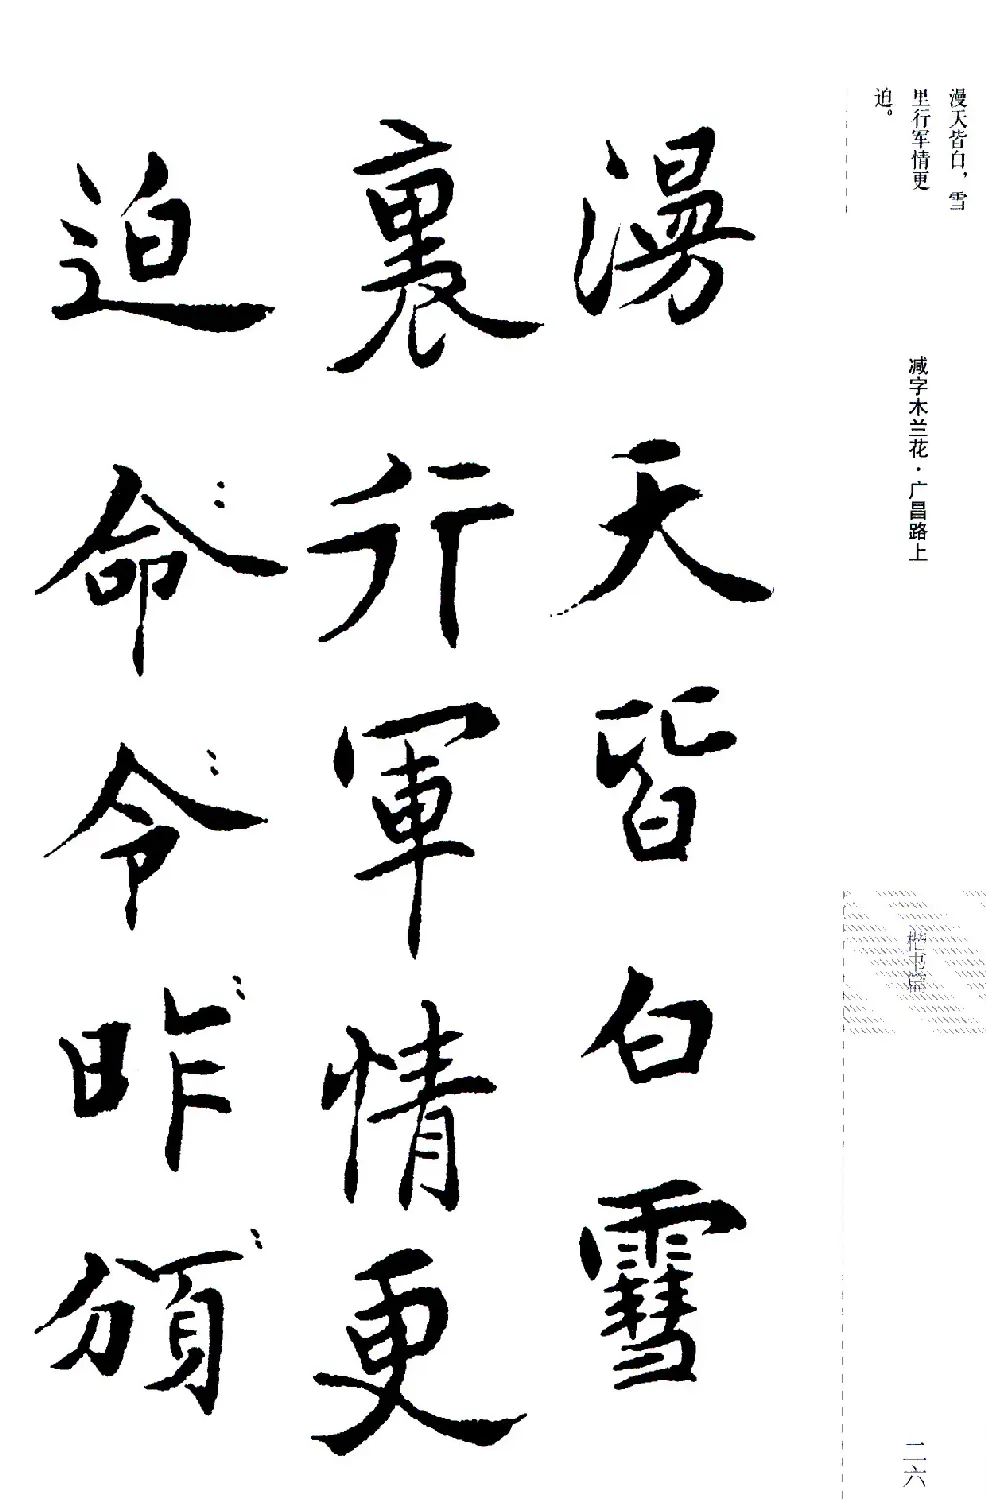 漫天皆白，雪
里行军情更
迫。
减字木兰花·广昌路上
楷书篇
二六
漫天皆白䨮
裏行軍情更
迫命令昨頒